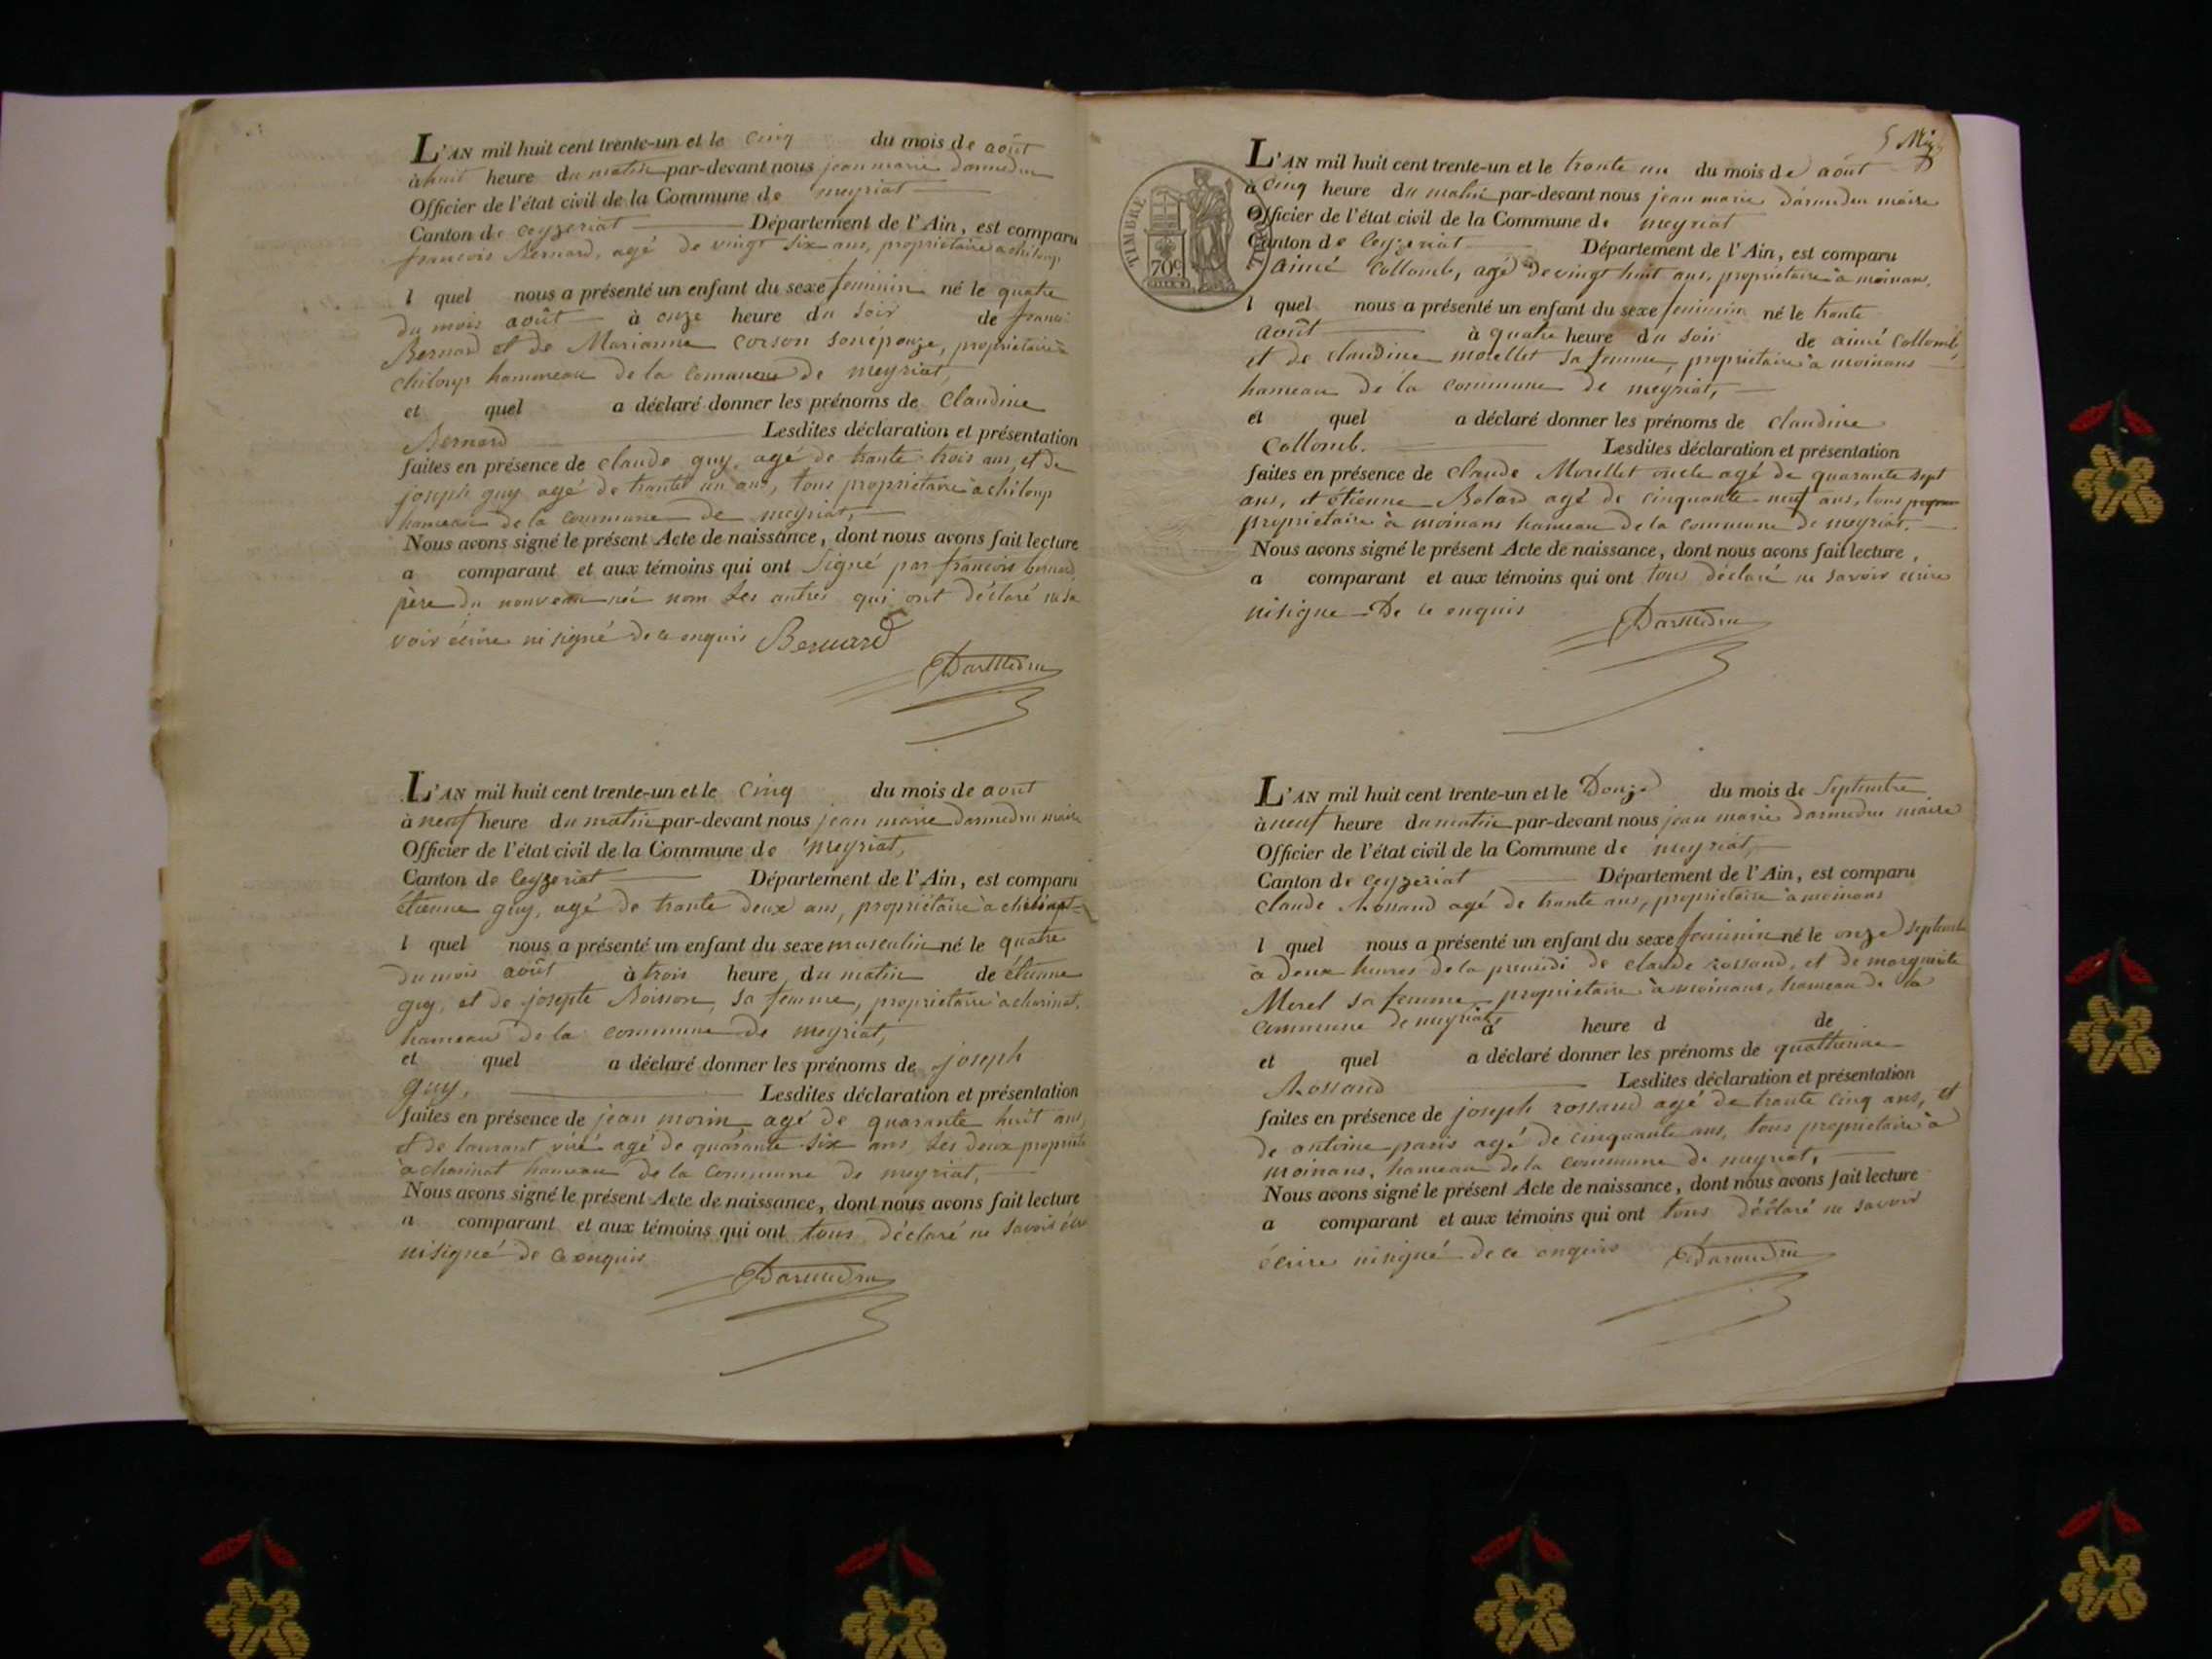 L'AN mil huit cent trente-un et le cinq du mois de août
à huit heure du matin par-devant nous jean marie darmedru
Officier de l'état civil de la Commune de meyriat
Canton de ceyzeriat Département de l'Ain, est comparu
francois Bernard, agé de vingt six ans, propriétaire a chiloup
l quel nous a présenté un enfant du sexe feminin né le quatre
du mois août à onze heure du soir de franci
Bernard et de Marianne corson son épouze, propriétaire à
chiloup hammeau de la commune de meyriat,
et quel a déclaré donner les prénoms de Claudine
Bernard Lesdites déclaration et présentation
faites en présence de claude guy, agé de trante trois ans, et de
joseph guy agé de trante un ans, tous propriétaire à chiloup
hameau de la commune de meyriat,
Nous avons signé le présent Acte de naissance, dont nous avons fait lecture
a comparant et aux témoins qui ont signé par francois bernard
père du nouveau né nom les autres qui ont déclaré ne sa
voir écrire ni signé de ce enquis Bernard
Darmedru
L'AN mil huit cent trente-un et le cinq du mois de aout
à neuf heure du matin par-devant nous jean marie darmedru maire
Officier de l'état civil de la Commune de meyriat,
Canton de ceyzeriat Département de l'Ain, est comparu
étienne guy, agé de trante deux ans, propriétaire à
l quel nous a présenté un enfant du sexe masculin né le quatre
du mois août à trois heure du matin de étienne
guy, et de josepte Boisson, sa femme, propriétaire à charinat,
hameau de la commune de meyriat,
et quel a déclaré donner les prénoms de joseph
guy, Lesdites déclaration et présentation
faites en présence de jean morin agé de quarante huit ans,
et de laurant viré agé de quarante six ans les deux propriéta
à charinat hameau de la commune de meyriat,
Nous avons signé le présent Acte de naissance, dont nous avons fait lecture
a comparant et aux témoins qui ont tous déclaré ne savoir écri
ni signé de ce enquis
Darmedru
5
TIMBRE
70c
L'AN mil huit cent trente-un et le trante un du mois de août
à cinq heure du matin par-devant nous jean marie darmedru maire
Officier de l'état civil de la Commune de meyriat
Canton de ceyzeriat Département de l'Ain, est comparu
aimé Collomb, agé de vingt huit ans, propriétaire à moinans,
l quel nous a présenté un enfant du sexe feminin né le trante
août à quatre heure du soir de aimé Collomb,
et de claudine morellet sa femme, propriétaire à moinans
hameau de la commune de meyriat,
et quel a déclaré donner les prénoms de claudine
Collomb. Lesdites déclaration et présentation
faites en présence de claude Morellet oncle agé de quarante sept
ans, et étienne Bolard agé de cinquante neuf ans, tous
propriétaire à moinans hameau de la commune de meyriat.
Nous avons signé le présent Acte de naissance, dont nous avons fait lecture,
a comparant et aux témoins qui ont tous déclaré ne savoir ecrire
ni signe De ce enquis
Darmedru
L'AN mil huit cent trente-un et le Douze du mois de Septembre
à neuf heure du matin par-devant nous jean marie darmedru maire
Officier de l'état civil de la Commune de meyriat,
Canton de ceyzeriat Département de l'Ain, est comparu
claude Rossand agé de trante ans, propriétaire à moinans
l quel nous a présenté un enfant du sexe feminin né le onze septembre
à deux heures de la premidi de claude rossand, et de marguerite
Morel sa femme, propriétaire à moinans, hameau de la
commune de meyriat, à heure d de
et quel a déclaré donner les prénoms de quatherine
Rossand Lesdites déclaration et présentation
faites en présence de joseph rossand agé de trante cinq ans, et
de antoine paris agé de cinquante ans, tous propriétaire à
moinans, hameau de la commune de meyriat,
Nous avons signé le présent Acte de naissance, dont nous avons fait lecture
a comparant et aux témoins qui ont tous déclaré ne savoir
écrire ni signé de ce enquis Darmedru